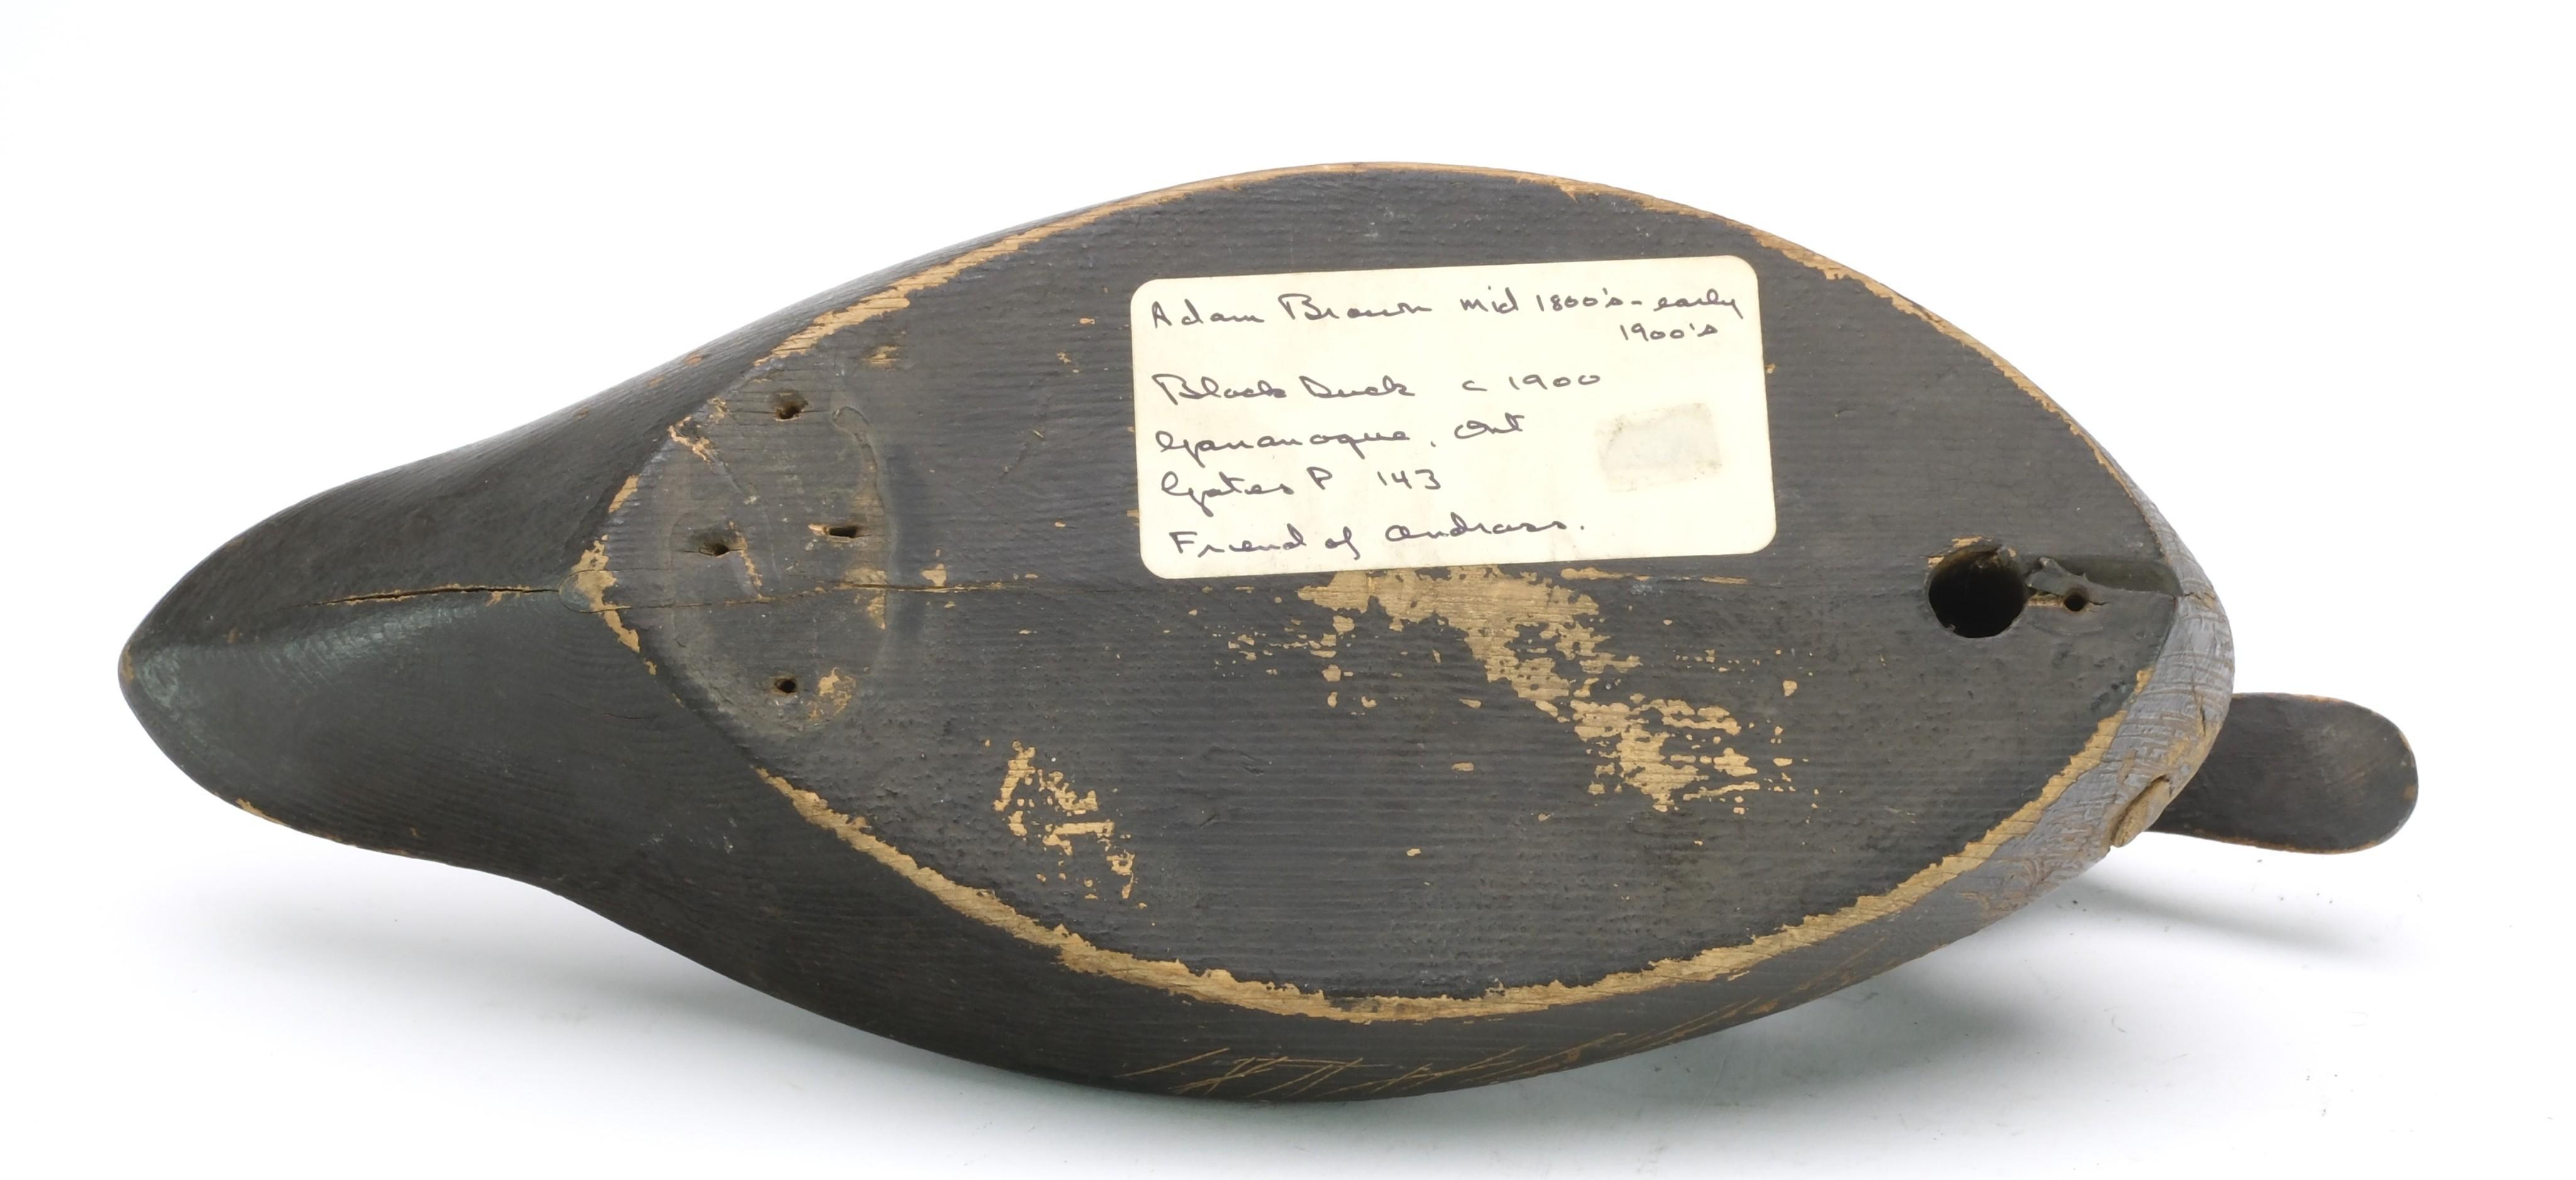 Adam Brown mid 1800's - early
1900's
Black Duck c 1900
Gananoque, Ont
Gates P 143
Friend of Andrass.